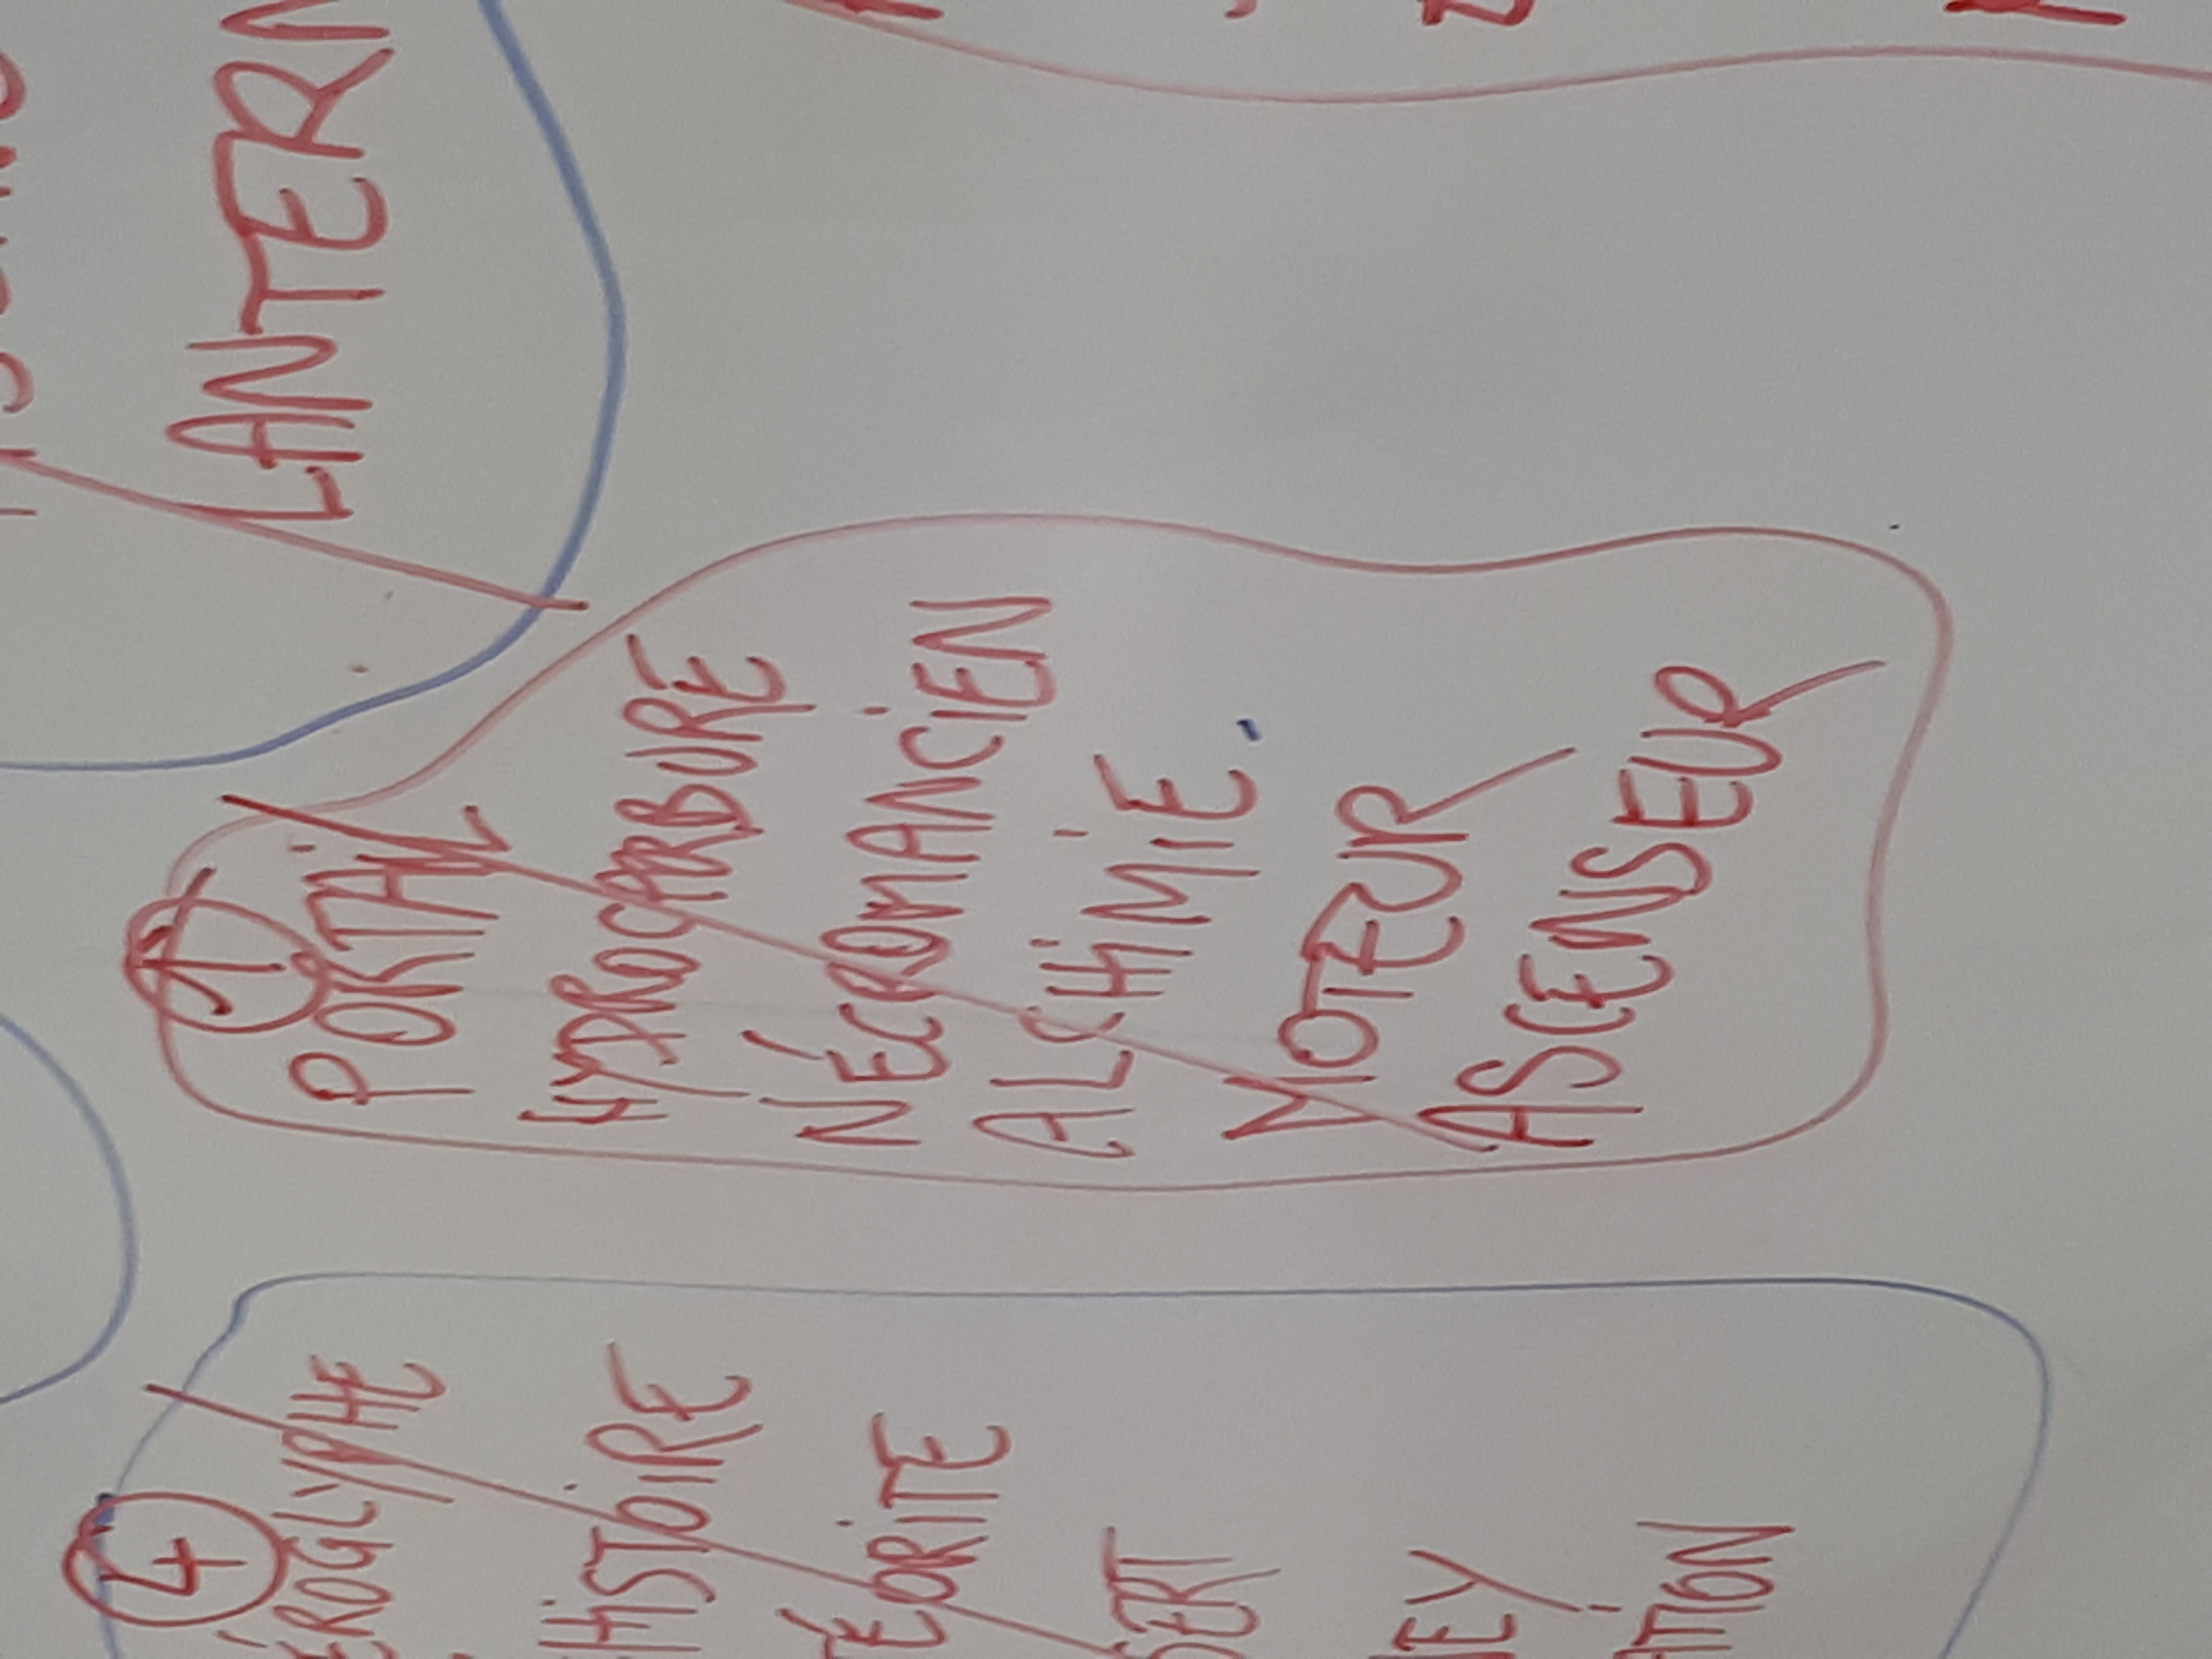 4
ÉROGLYPHE
HISTOIRE
TÉORITE
SERT
EY
ATION
1
PORTAIL
HYDROCARBURE
NÉCROMANCIEN
ALCHIMIE
MOTEUR
ASCENSEUR
LANTERN